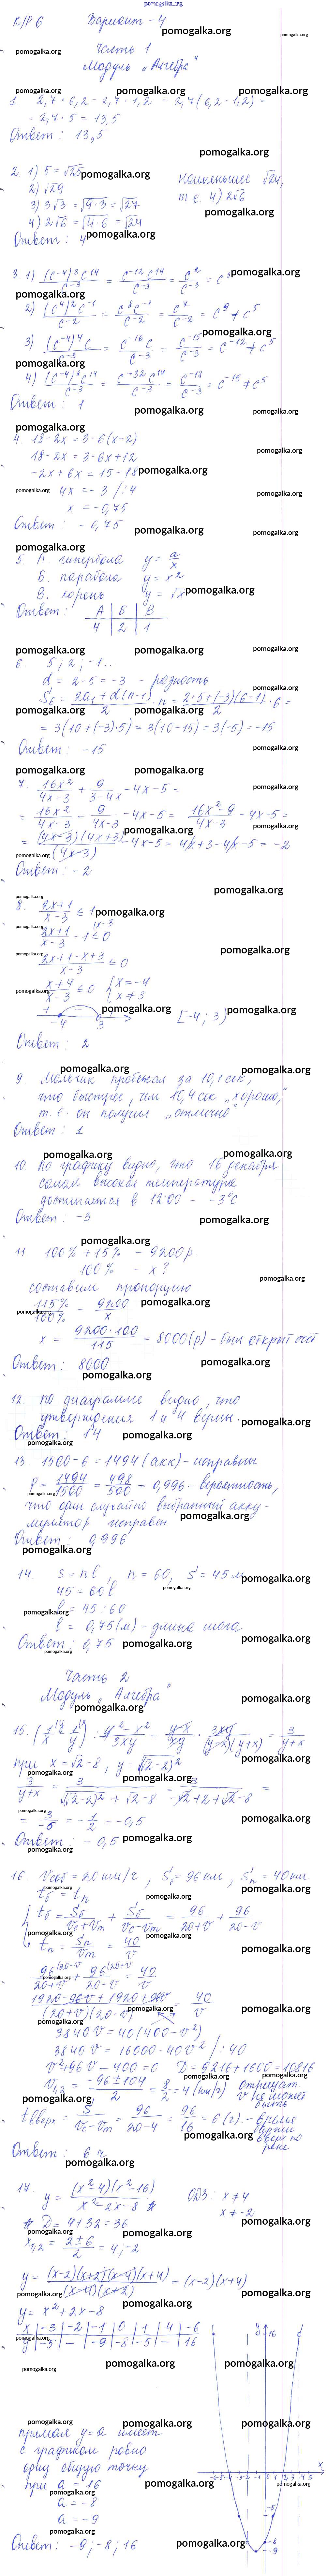 pomogalka.org
К/Р 6 Вариант - 4
Часть 1
Модуль „Алгебра"
1. 2,7 · 6,2 - 2,7 · 1,2 = 2,7(6,2 - 1,2) =
= 2,7 · 5 = 13,5
Ответ: 13,5
2. 1) 5 = √25
2) √29
3) 3√3 = √(9·3) = √27
4) 2√6 = √(4·6) = √24
наименьшее √24,
т.е. 4) 2√6
Ответ: 4
3 1) (c⁻⁴)³c¹⁴/c⁻³ = c⁻¹²c¹⁴/c⁻³ = c²/c⁻³ = c⁵
2) (c⁴)²c⁻¹/c⁻² = c⁸c⁻¹/c⁻² = c⁷/c⁻² = c⁹ ≠ c⁵
3) (c⁻⁴)⁴c/c⁻³ = c⁻¹⁶c/c⁻³ = c⁻¹⁵/c⁻³ = c⁻¹² ≠ c⁵
4) (c⁻⁴)⁸c¹⁴/c⁻³ = c⁻³²c¹⁴/c⁻³ = c⁻¹⁸/c⁻³ = c⁻¹⁵ ≠ c⁵
Ответ: 1
4. 18 - 2x = 3 - 6(x-2)
18 - 2x = 3 - 6x + 12
-2x + 6x = 15 - 18
4x = -3 /:4
x = -0,75
Ответ: -0,75
5. А. гипербола y = a/x
Б. парабола y = x²
В. корень y = √x
Ответ: А | Б | В
4 | 2 | 1
6. 5; 2; -1...
d = 2 - 5 = -3 - разность
S₆ = (2a₁ + d(n-1))/2 · n = (2·5 + (-3)(6-1))/2 · 6 =
= 3(10 + (-3)·5) = 3(10 - 15) = 3(-5) = -15
Ответ: -15
7. 16x²/(4x-3) + 9/(3-4x) - 4x - 5 =
= 16x²/(4x-3) - 9/(4x-3) - 4x - 5 = (16x²-9)/(4x-3) - 4x - 5 =
= (4x-3)(4x+3)/(4x-3) - 4x - 5 = 4x + 3 - 4x - 5 = -2
Ответ: -2
8. (2x+1)/(x-3) ≤ 1
(2x+1)/(x-3) - 1 ≤ 0
(2x+1-x+3)/(x-3) ≤ 0
(x+4)/(x-3) ≤ 0 { x = -4
x ≠ 3
+ -
-4 3 [-4; 3)
Ответ: 2
9 Мальчик пробежал за 10,1 сек,
что быстрее, чем 10,4 сек „хорошо,"
т.е. он получил „отлично"
Ответ: 1
10 По графику видно, что 16 декабря
самая высокая температура
достигается в 12:00 - -3°C
Ответ: -3
11 100% + 15% - 9200 р.
100% - x?
составим пропорцию
115%/100% = 9200/x
x = 9200·100/115 = 8000(р) - был открыт счёт
Ответ: 8000
12. по диаграмме видно, что
утверждения 1 и 4 верны
Ответ: 14
13. 1500 - 6 = 1494 (акк) - исправны
P = 1494/1500 = 498/500 = 0,996 - вероятность,
что один случайно выбранный акку-
мулятор исправен.
Ответ: 0,996
14. s = nl, n = 60, s = 45 м
45 = 60l
l = 45 : 60
l = 0,75 (м) - длина шага
Ответ: 0,75
Часть 2
Модуль „Алгебра"
15. (1/x - 1/y) : (y²-x²)/3xy = (y-x)/xy · 3xy/((y-x)(y+x)) = 3/(y+x)
при x = √2 - 8, y = √(√2-2)²
3/(y+x) = 3/(√(√2-2)² + √2 - 8) = 3/(-√2+2+√2-8) =
= 3/-6 = -1/2 = -0,5
Ответ: -0,5
16. Vсоб = 20 км/ч, Sб = 96 км, Sп = 40 км
tб = tп
{ tб = Sб/(Vс+Vт) + Sб/(Vс-Vт) = 96/(20+v) + 96/(20-v)
tп = Sп/Vт = 40/v
96/(20+v) + 96/(20-v) = 40/v
(1920-96v+1920+96v)/((20+v)(20-v)) = 40/v
3840v = 40(400-v²)
3840v = 16000 - 40v² /:40
v² + 96v - 400 = 0 D = 9216 + 1600 = 10816
v₁,₂ = (-96±104)/2 = 8/2 = 4 (км/ч) отрицат
v не может
быть
tвверх = S/(Vс-Vт) = 96/(20-4) = 96/16 = 6(ч) - время
баржи
вверх по
реке
Ответ: 6 ч
17. y = (x²-4)(x²-16)/(x²-2x-8) ОДЗ: x ≠ 4
x ≠ -2
D = 4 + 32 = 36
x₁,₂ = (2±6)/2 = 4; -2
y = (x-2)(x+2)(x-4)(x+4)/((x-4)(x+2)) = (x-2)(x+4)
y = x² + 2x - 8
x | -3 | -2 | -1 | 0 | 1 | 4 | -6
y | -5 | - | -9 | -8 | -5 | - | 16
прямая y = a имеет
с графиком ровно
одну общую точку
при a = 16
a = -8
a = -9
Ответ: -9; -8; 16